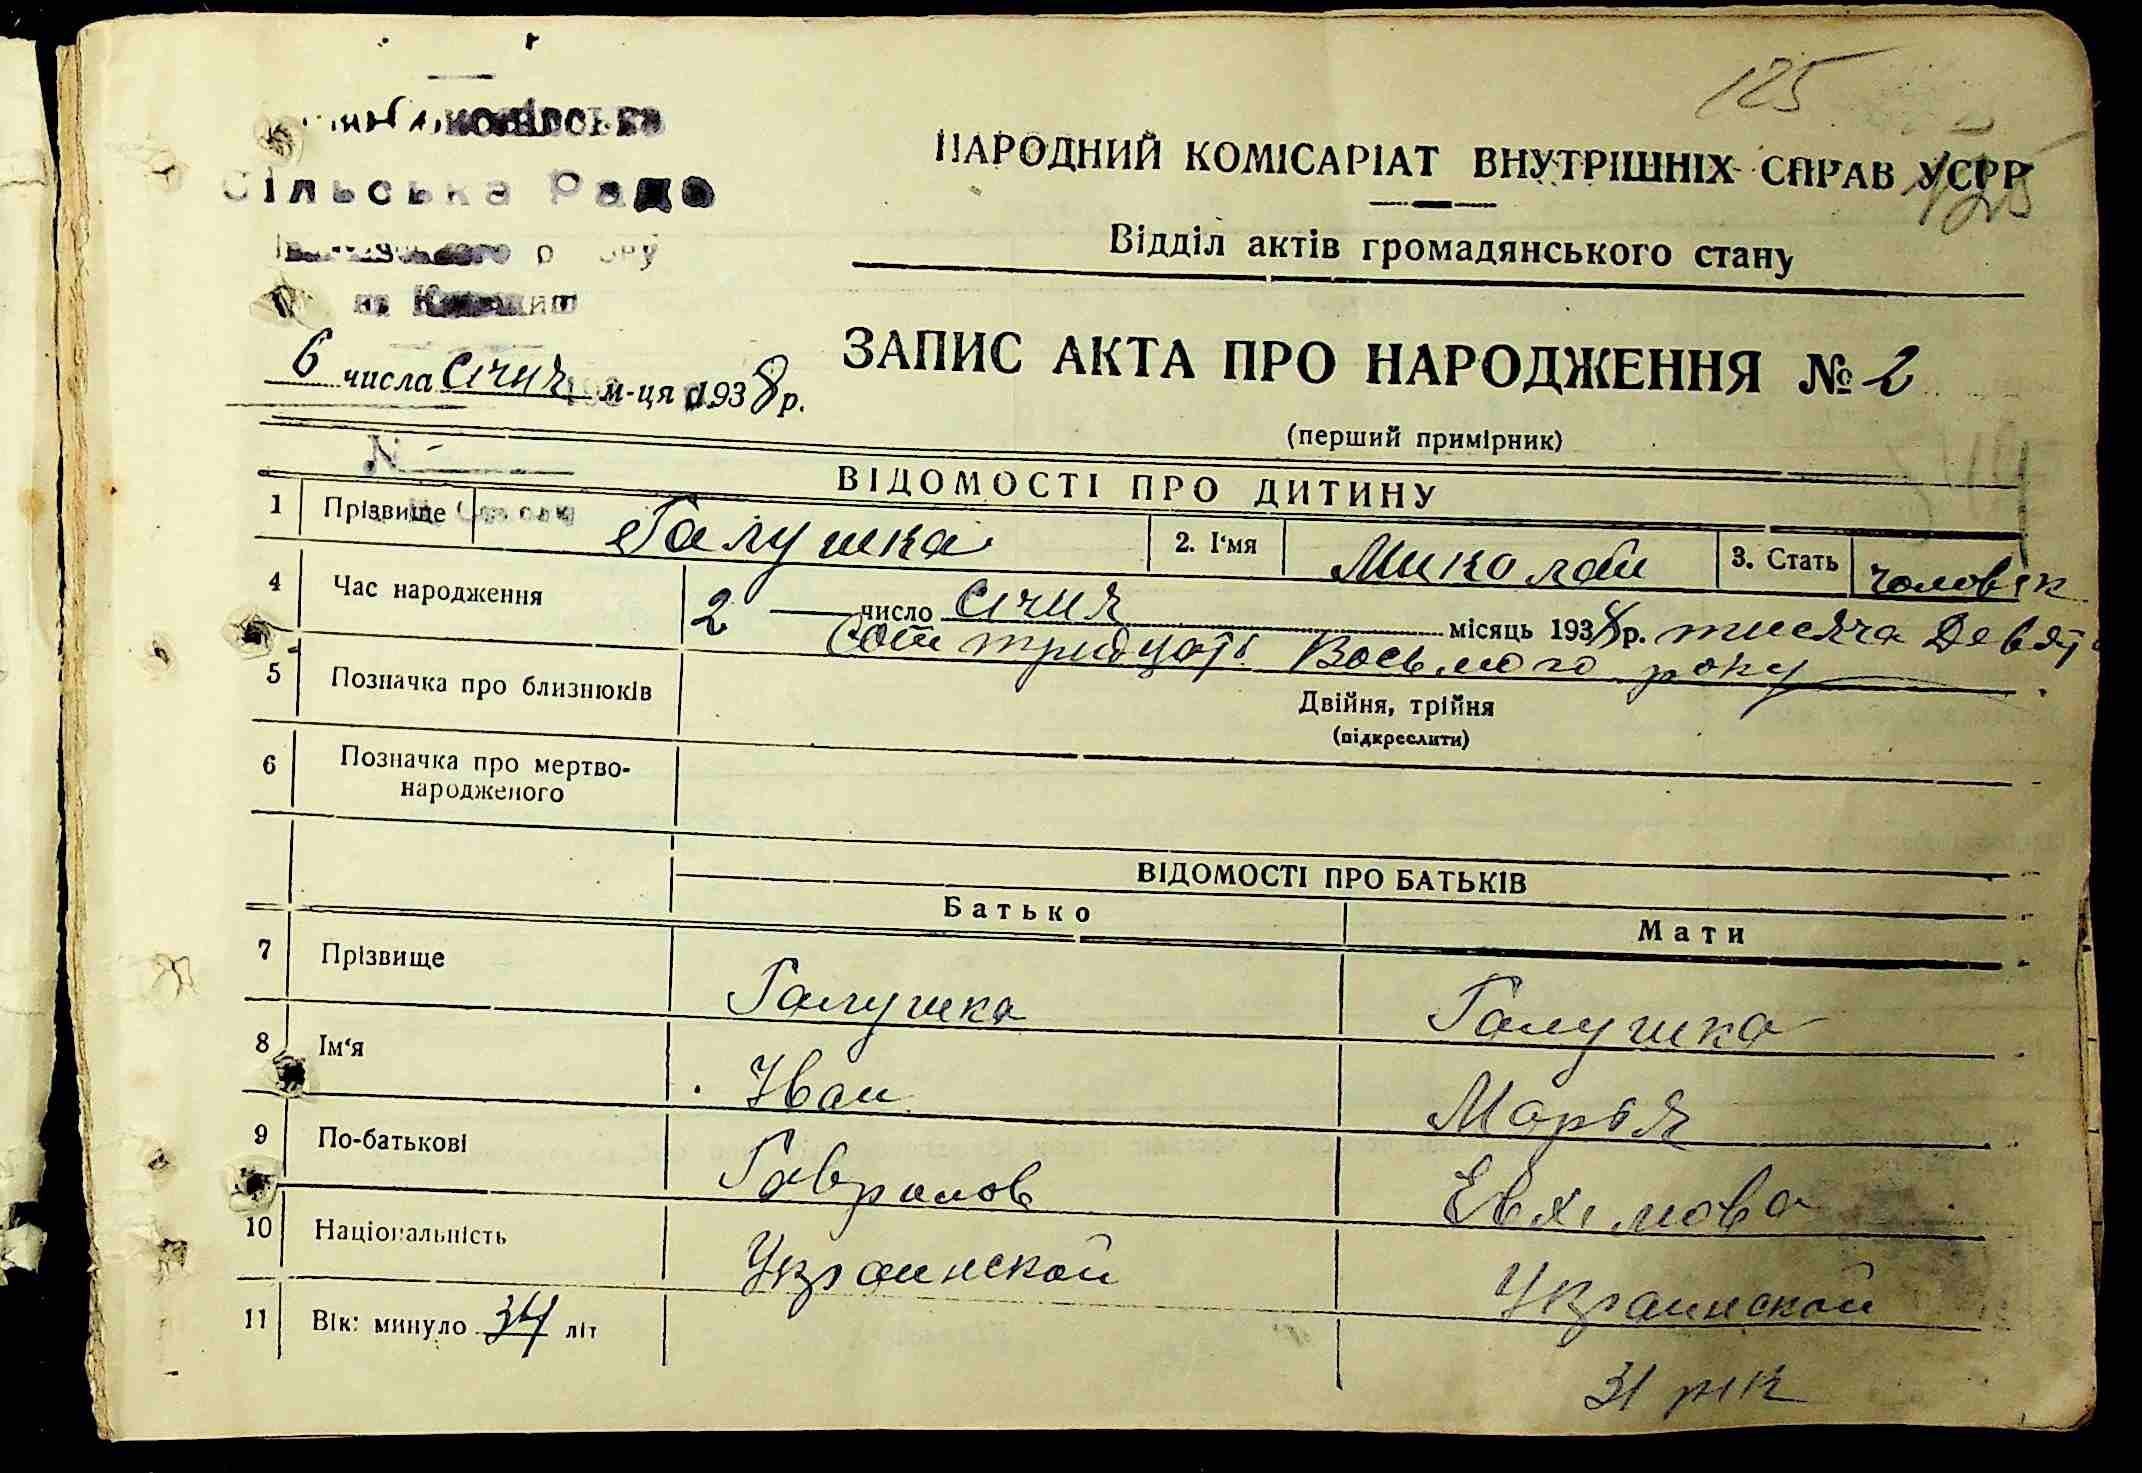 125
Сільська Рада
НАРОДНИЙ КОМІСАРІАТ ВНУТРІШНІХ СПРАВ УСРР
125
Відділ актів громадянського стану
6 числа січня м-ця 1938 р.
ЗАПИС АКТА ПРО НАРОДЖЕННЯ № 2
(перший примірник)
№
ВІДОМОСТІ ПРО ДИТИНУ
1 Прізвище Галушка 2. І'мя Миколай 3. Стать чоловік
4 Час народження 2 число січня місяць 1938 р. тисяча Девят
Сот тридцать Восьмого року
5 Позначка про близнюків Двійня, трійня
(підкреслити)
6 Позначка про мертво-
народженого
ВІДОМОСТІ ПРО БАТЬКІВ
Батько Мати
7 Прізвище Галушка Галушка
8 Ім'я Иван Марья
9 По-батькові Гаврилов Евхимова
10 Національність Украинской Украинской
11 Вік: минуло 34 літ
31 рік